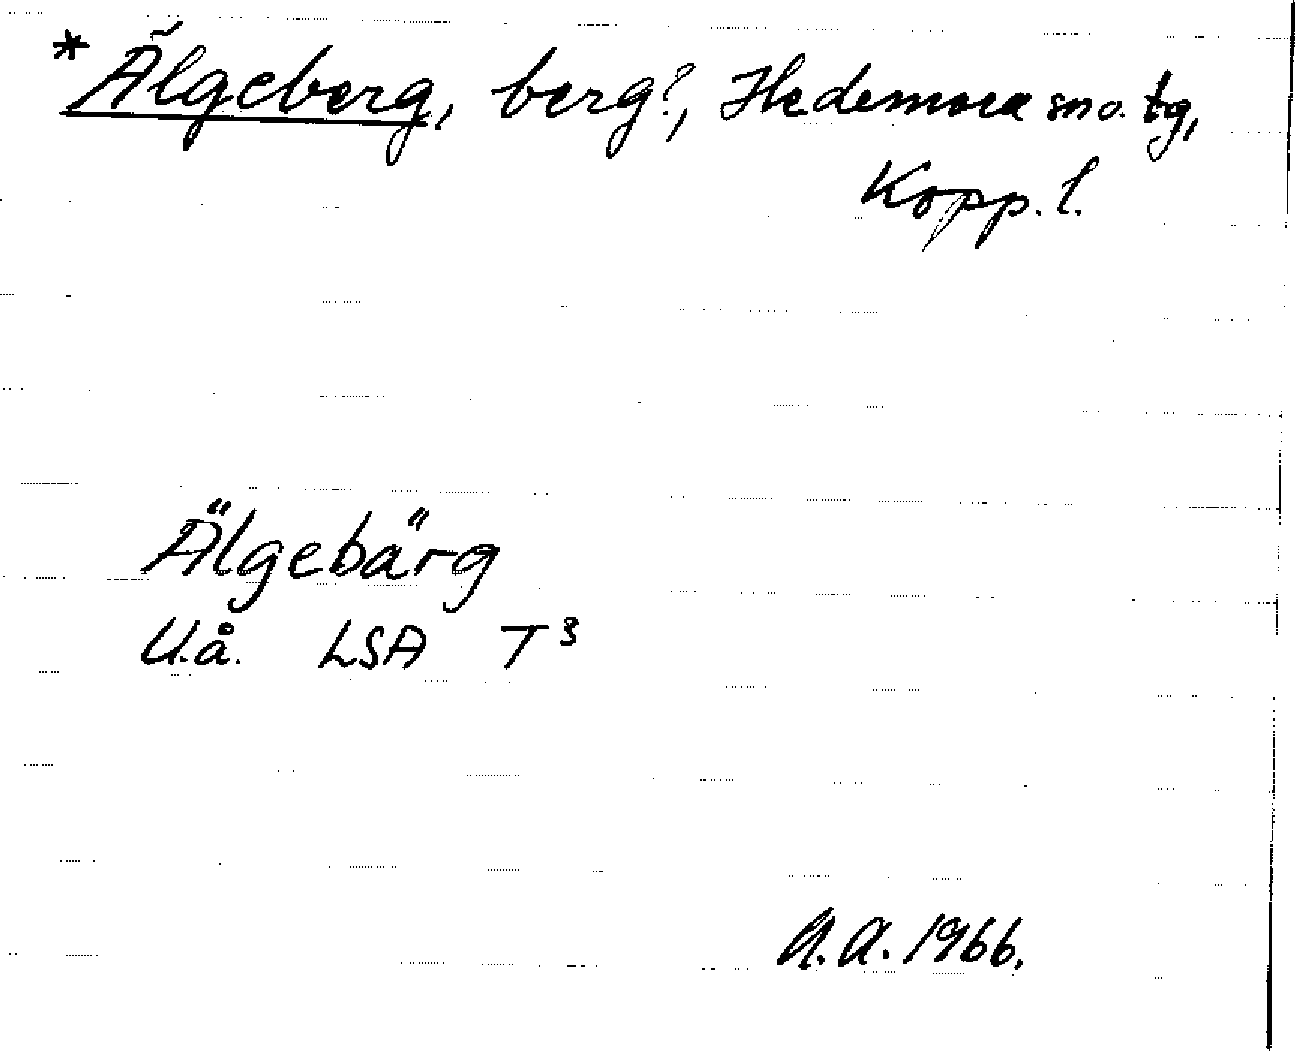 *Älgeberg, berg?, Hedemora sn o. tg,
Kopp. l.
Älgebärg
U.å. LSA T3
A.A. 1966.